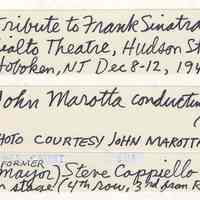 Tribute to Frank Sinatra
Rialto Theatre, Hudson St
Hoboken, NJ Dec 8-12, 194
John Marotta conducting
PHOTO COURTESY JOHN MAROTTA
FORMER
mayor) Steve Cappiello
on stage (4th row, 3rd from R